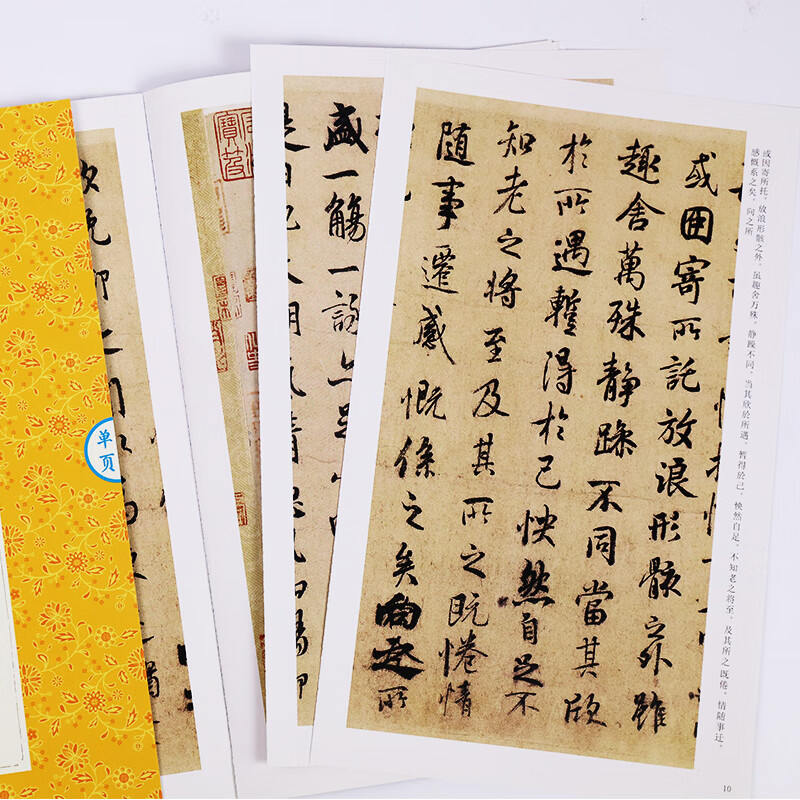 或因寄所托，放浪形骸之外。虽趣舍万殊，静躁不同，当其欣於所遇，暂得於己，怏然自足，不知老之将至，及其所之既倦，情随事迁，
感慨系之矣。向之所
或因寄所託放浪形骸之外雖
趣舍萬殊靜躁不同當其欣
於所遇蹔得於己怏然自足不
知老之將至及其所之既惓情
隨事遷感慨係之矣向之所
10
盛一觴一詠
是日也天朗氣清惠風和暢仰
单页